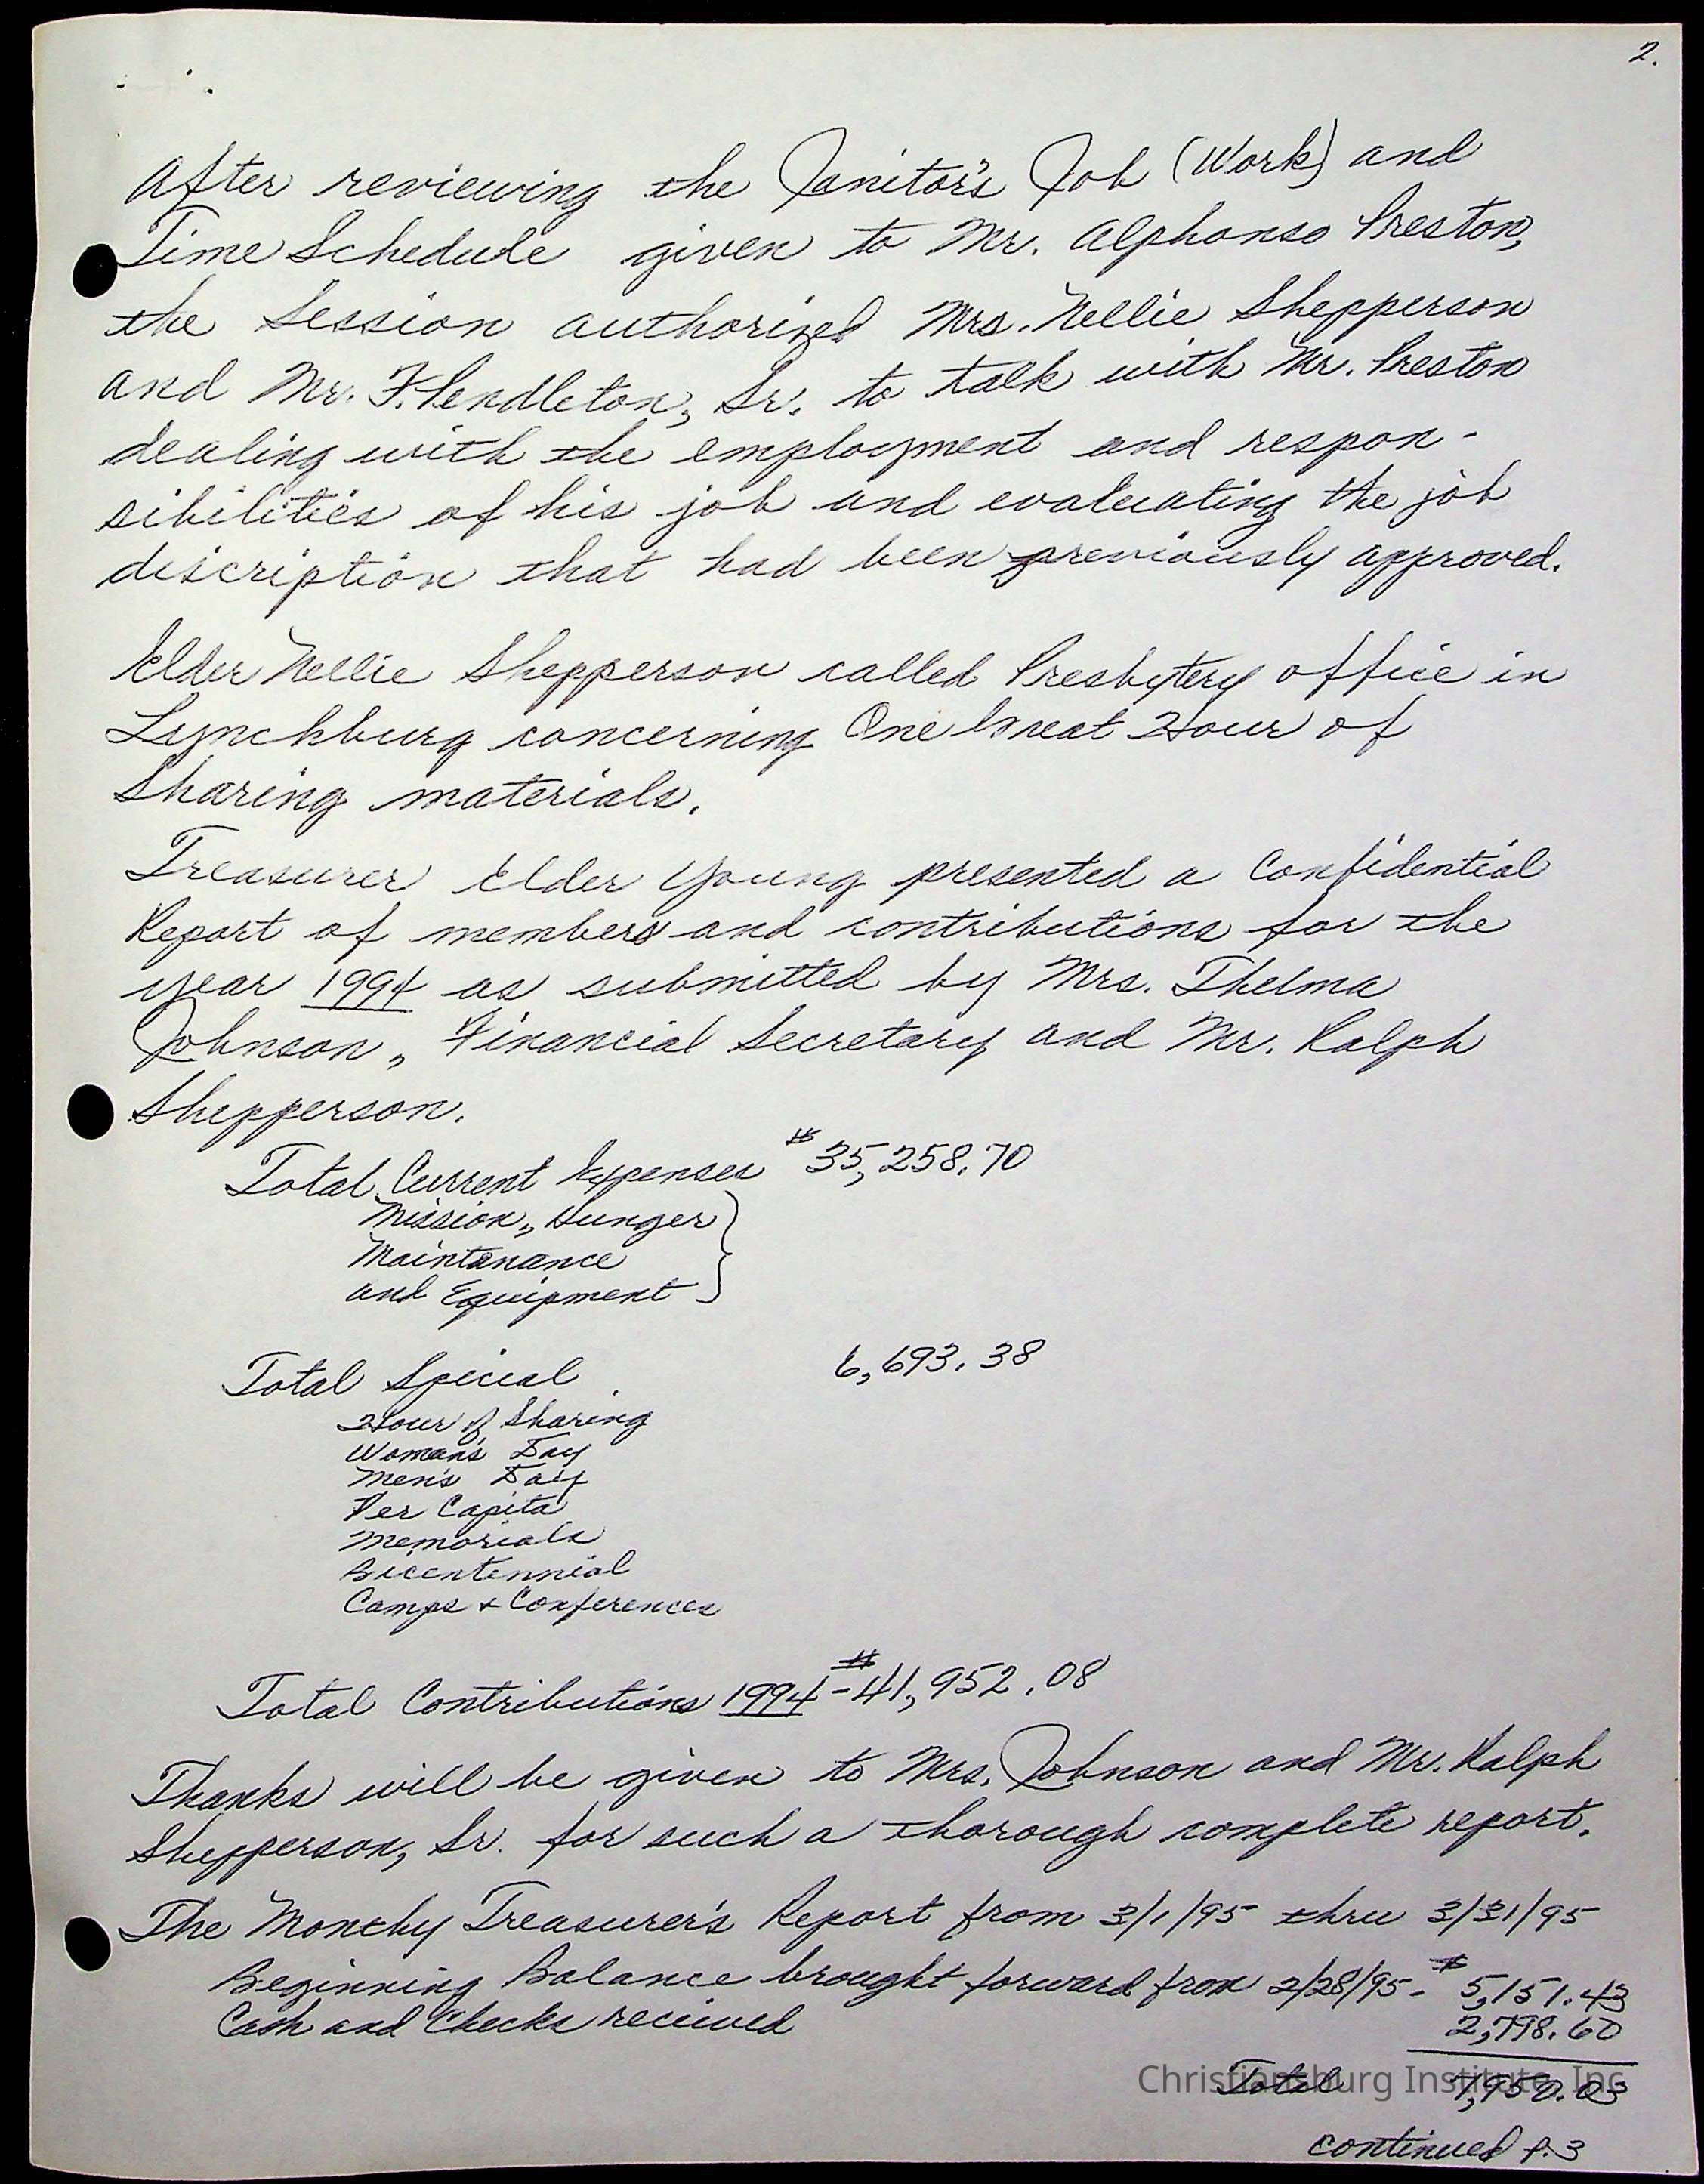 2.
After reviewing the Janitor's Job (Work) and
Time Schedule given to Mr. Alphonso Preston,
the Session authorized Mrs. Nellie Shepperson
and Mr. F. Pendleton, Sr. to talk with Mr. Preston
dealing with the employment and respon-
sibilities of his job and evaluating the job
discription that had been previously approved.
Elder Nellie Shepperson called Presbytery office in
Lynchburg concerning One Great Hour of
Sharing materials.
Treasurer Elder Young presented a Confidential
Report of members and contributions for the
year 1994 as submitted by Mrs. Thelma
Johnson, Financial Secretary and Mr. Ralph
Shepperson.
Total Current Expenses $35,258.70
Mission, Hunger
Maintanance
and Equipment
Total Special 6,693.38
Hour of Sharing
Woman's Day
Men's Day
Per Capita
Memorials
Bicentennial
Camps + Conferences
Total Contributions 1994 - $41,952.08
Thanks will be given to Mrs. Johnson and Mr. Ralph
Shepperson, Sr. for such a thorough complete report.
The Monthy Treasurer's Report from 3/1/95 thru 3/31/95
Beginning Balance brought forward from 2/28/95 - $5,151.43
Cash and Checks received 2,798.60
Total 7,950.03
Christiansburg Institute, Inc
continued p.3